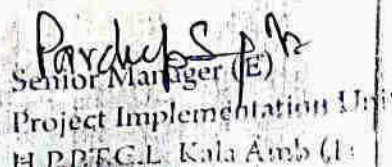 Senior Manager (E)
Project Implementation Uni
H.P.P.T.C.L. Kala Amb (